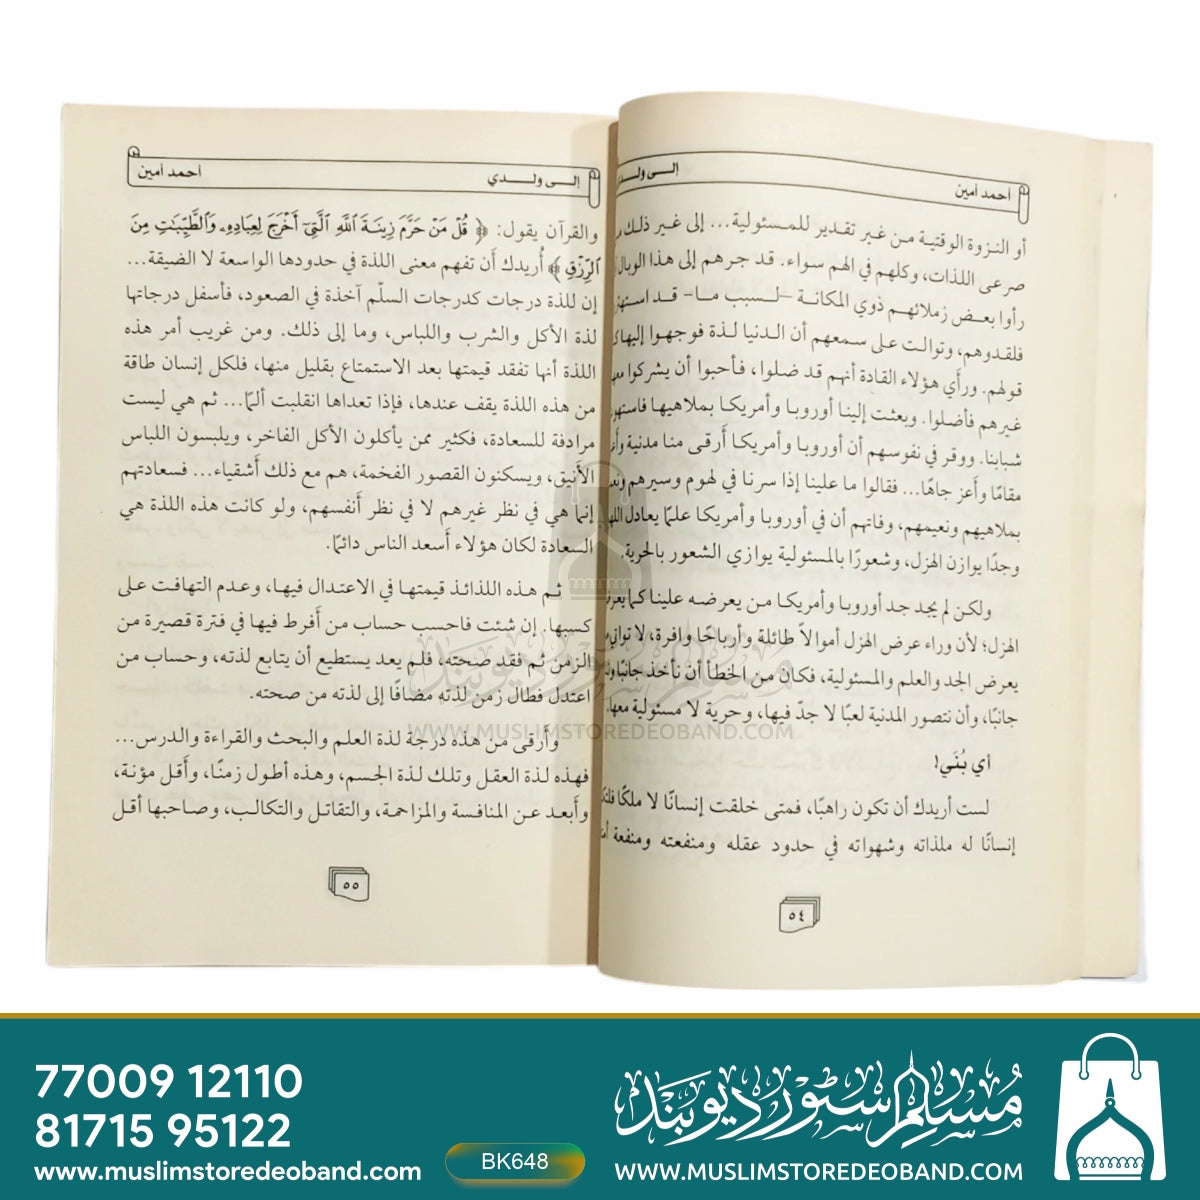 أحمد أمين
إلــى ولــدي
أو النزوة الوقتية من غير تقدير للمسئولية... إلى غير ذلك
صرعى اللذات، وكلهم في الهم سواء. قد جرهم إلى هذا الوبال
رأوا بعض زملائهم ذوي المكانة –لسبب ما– قد
فلقدوهم، وتوالت على سمعهم أن الدنيا لذة فوجهوا إليها
قولهم. ورأي هؤلاء القادة أنهم قد ضلوا، فأحبوا أن يشركوا
غيرهم فأضلوا. وبعثت إلينا أوروبا وأمريكا بملاهيها
شبابنا. ووقر في نفوسهم أن أوروبا وأمريكا أرقى منا مدنية
مقامًا وأعز جاهًا... فقالوا ما علينا إذا سرنا في لهوم وسيرهم
بملاهيهم ونعيمهم، وفاتهم أن في أوروبا وأمريكا علمًا يعادل
وجدًا يوازن الهزل، وشعورًا بالمسئولية يوازي الشعور بالحرية.
ولكن لم يجد جد أوروبا وأمريكا من يعرضه علينا كما
الهزل؛ لأن وراء عرض الهزل أموالاً طائلة وأرباحًا وافرة، لا
يعرض الجد والعلم والمسئولية، فكان من الخطأ أن نأخذ جانبًا
جانبًا، وأن نتصور المدنية لعبًا لا جدّ فيها، وحرية لا مسئولية معها.
أي بُنَي!
لست أريدك أن تكون راهبًا، فمتى خلقت إنسانًا لا ملكًا
إنسانًا له ملذاته وشهواته في حدود عقله ومنفعته ومنفعة
٥٤
إلــى ولــدي
أحمد أمين
والقرآن يقول: ﴿ قُلْ مَنْ حَرَّمَ زِينَةَ اللَّهِ الَّتِي أَخْرَجَ لِعِبَادِهِ وَالطَّيِّبَاتِ مِنَ
الرِّزْقِ ﴾ أُريدك أن تفهم معنى اللذة في حدودها الواسعة لا الضيقة...
إن للذة درجات كدرجات السلّم آخذة في الصعود، فأسفل درجاتها
لذة الأكل والشرب واللباس، وما إلى ذلك. ومن غريب أمر هذه
اللذة أنها تفقد قيمتها بعد الاستمتاع بقليل منها، فلكل إنسان طاقة
من هذه اللذة يقف عندها، فإذا تعداها انقلبت ألمًا... ثم هي ليست
مرادفة للسعادة، فكثير ممن يأكلون الأكل الفاخر، ويلبسون اللباس
الأنيق، ويسكنون القصور الفخمة، هم مع ذلك أشقياء... فسعادتهم
إنما هي في نظر غيرهم لا في نظر أنفسهم، ولو كانت هذه اللذة هي
السعادة لكان هؤلاء أسعد الناس دائمًا.
ثم هذه اللذائذ قيمتها في الاعتدال فيها، وعدم التهافت على
كسبها. إن شئت فاحسب حساب من أفرط فيها في فترة قصيرة من
الزمن ثم فقد صحته، فلم يعد يستطيع أن يتابع لذته، وحساب من
اعتدل فطال زمن لذته مضافًا إلى لذته من صحته.
وأرقى من هذه درجة لذة العلم والبحث والقراءة والدرس...
فهذه لذة العقل وتلك لذة الجسم، وهذه أطول زمنًا، وأقل مؤنة،
وأبعد عن المنافسة والمزاحمة، والتقاتل والتكالب، وصاحبها أقل
٥٥
مسلم سٹور دیوبند
WWW.MUSLIMSTOREDEOBAND.COM
77009 12110
81715 95122
www.muslimstoredeoband.com
BK648
مسلم سٹور دیوبند
WWW.MUSLIMSTOREDEOBAND.COM